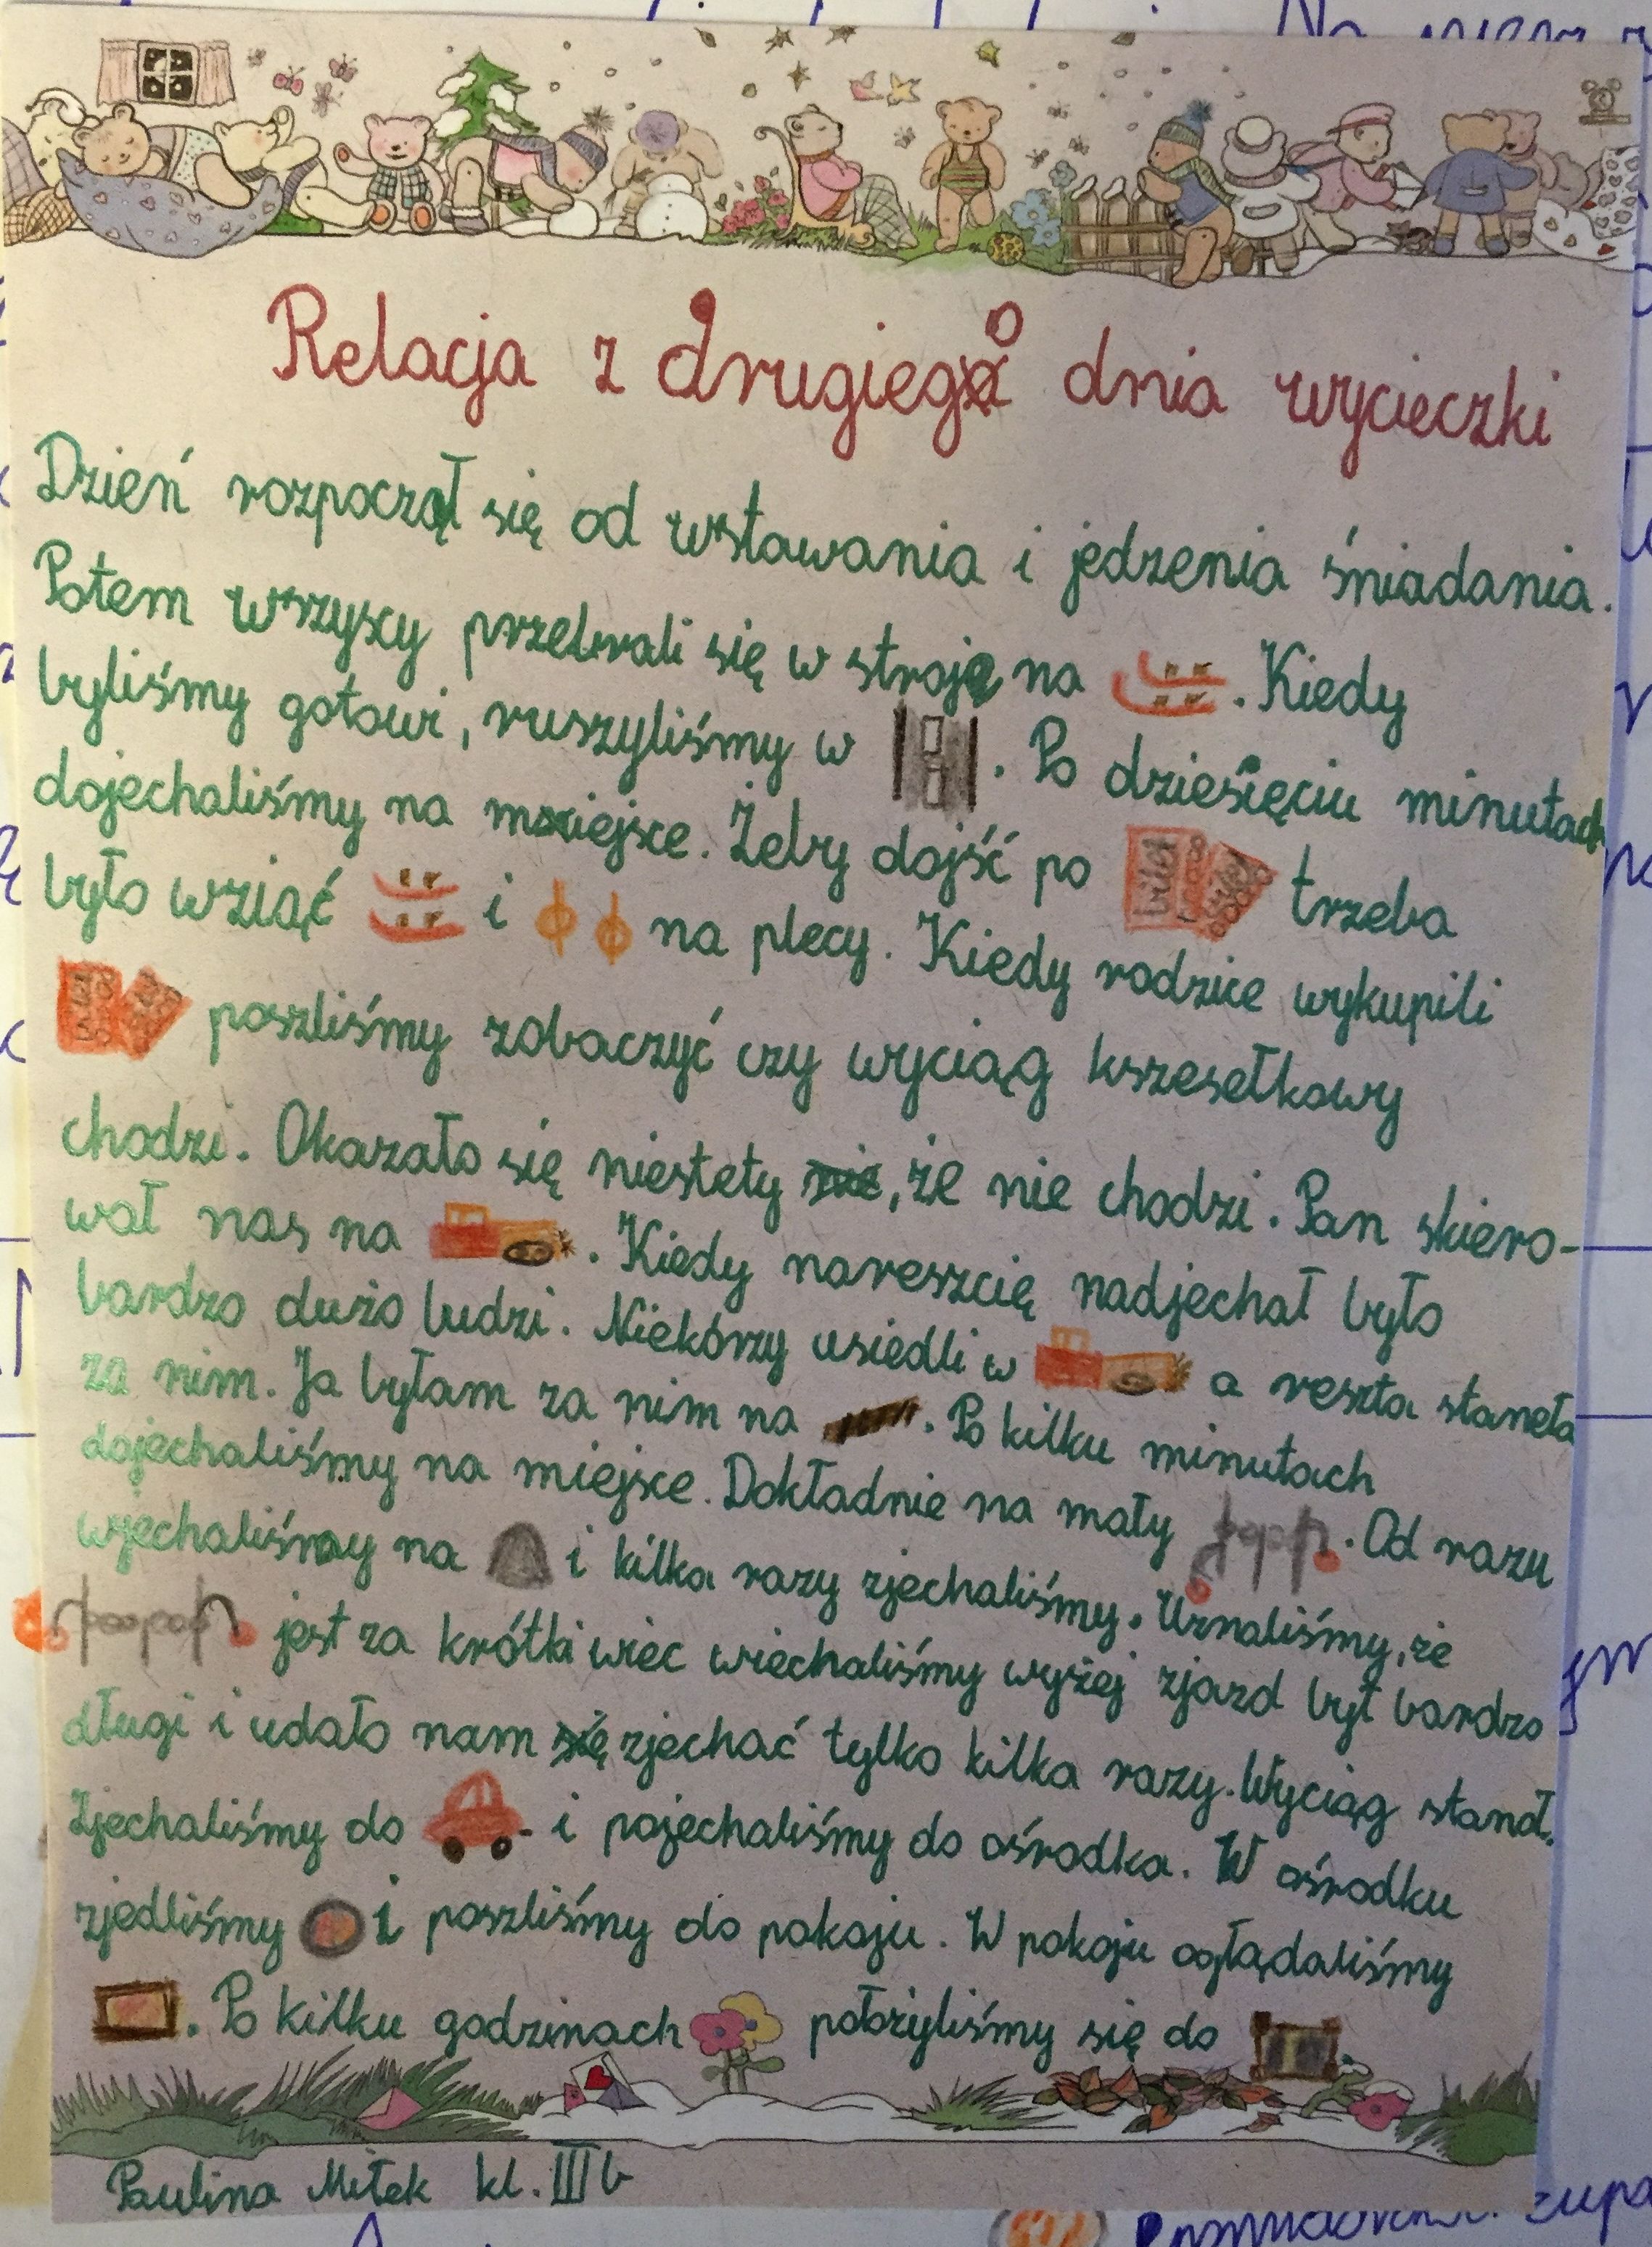 Relacja z drugiego dnia wycieczki
Dzień rozpoczął się od wstawania i jedzenia śniadania.
Potem wszyscy przebrali się w stroje na . Kiedy
byliśmy gotowi, ruszyliśmy w . Po dziesięciu minutach
dojechaliśmy na miejsce. Żeby dojść po bilet trzeba
było wziąć i na plecy. Kiedy rodzice wykupili
poszliśmy zobaczyć czy wyciąg kszesełkowy
chodzi. Okazało się niestety nie, że nie chodzi. Pan skiero-
wał nas na . Kiedy nareszcię nadjechał było
bardzo dużo ludzi. Niekórzy usiedli w a reszta staneła
za nim. Ja byłam za nim na . Po kilku minutach
dojechaliśmy na miejsce. Dokładnie na mały . Od razu
wjechaliśmy na i kilka razy zjechaliśmy. Uznaliśmy, że
jest za krótki wiec wiechaliśmy wyżej zjazd był bardzo
długi i udało nam się zjechać tylko kilka razy. Wyciąg stanoł.
Zjechaliśmy do i pojechaliśmy do ośrodka. W ośrodku
zjedliśmy i poszliśmy do pokoju. W pokoju oglądaliśmy
. Po kilku godzinach położyliśmy się do .
Paulina Mitek kl. III b